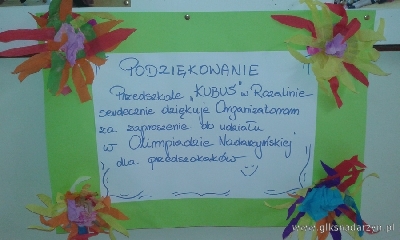 PODZIĘKOWANIE
Przedszkole „KUBUŚ" w Rozalinie
serdecznie dziękuje Organizatorom
za zaproszenie do udziału
w Olimpiadzie Nadarzyńskiej
dla przedszkolaków
www.glksnadarzyn.pl